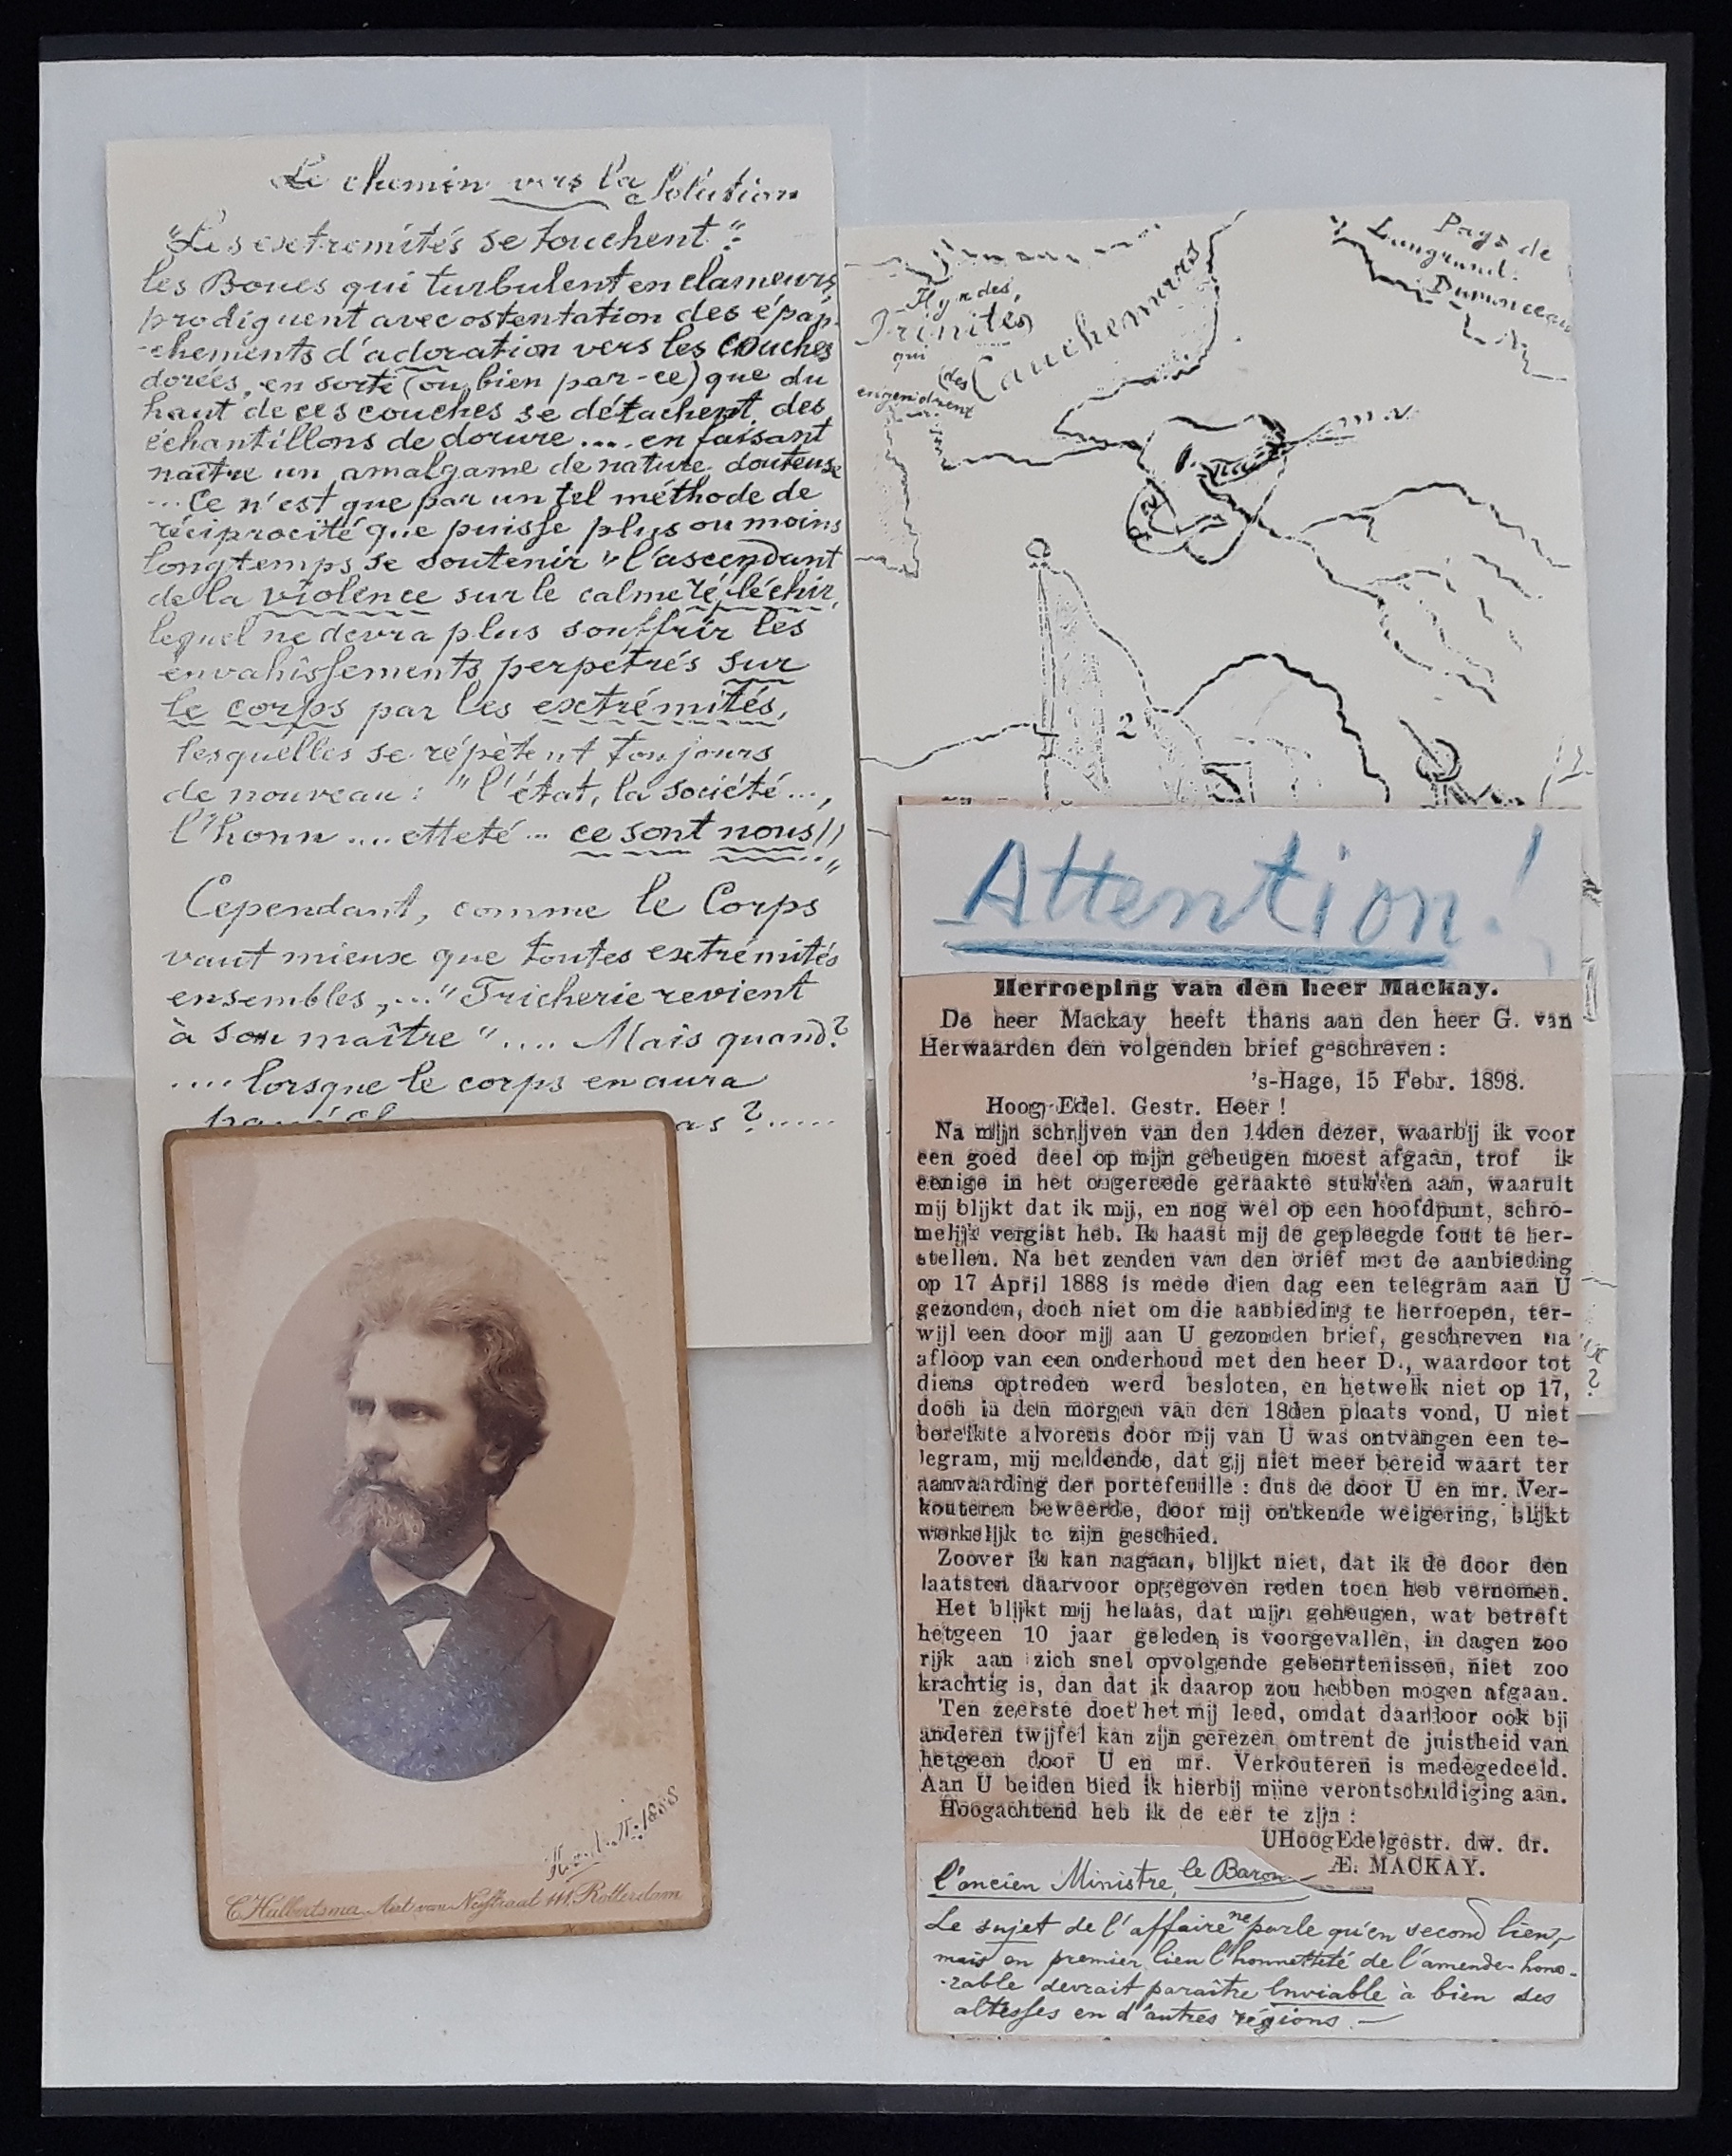 Le chemin vers la Solution
"Les extrémités se touchent":
les Boues qui turbulent en clameurs,
prodiguent avec ostentation des épan-
-chements d'adoration vers les couches
dorées, en sorte (ou bien par-ce) que du
haut de ces couches se détachent des
échantillons de dorure .... en faisant
naître un amalgame de nature douteuse
... Ce n'est que par un tel méthode de
réciprocité que puisse plus ou moins
longtemps se soutenir "l'ascendant
de la violence sur le calme réfléchir,
lequel ne devra plus souffrir les
envahissements perpétrés sur
le corps par les extrémités,
lesquelles se répètent toujours
de nouveau: "l'état, la société ...,
l'honn .... etteté ... ce sont nous!!"
Cependant, comme le Corps
vaut mieux que toutes extrémités
ensembles, ... "Tricherie revient
à son maître" .... Mais quand?
.... lorsque le corps en aura
as? ......
Pays de
Dumonceau
Trinités
qui
engendrent
(des
Cauchemars
2
Attention!
Herroeping van den heer Mackay.
De heer Mackay heeft thans aan den heer G. van
Herwaarden den volgenden brief geschreven:
's-Hage, 15 Febr. 1898.
Hoog-Edel. Gestr. Heer!
Na mijn schrijven van den 14den dezer, waarbij ik voor
een goed deel op mijn geheugen moest afgaan, trof ik
eenige in het ongereede geraakte stukken aan, waaruit
mij blijkt dat ik mij, en nog wel op een hoofdpunt, schro-
melijk vergist heb. Ik haast mij de gepleegde fout te her-
stellen. Na het zenden van den brief met de aanbieding
op 17 April 1888 is mede dien dag een telegram aan U
gezonden, doch niet om die aanbieding te herroepen, ter-
wijl een door mij aan U gezonden brief, geschreven na
afloop van een onderhoud met den heer D., waardoor tot
diens optreden werd besloten, en hetwelk niet op 17,
doch in den morgen van den 18den plaats vond, U niet
bereikte alvorens door mij van U was ontvangen een te-
legram, mij meldende, dat gij niet meer bereid waart ter
aanvaarding der portefeuille: dus de door U en mr. Ver-
kouteren beweerde, door mij ontkende weigering, blijkt
werkelijk te zijn geschied.
Zoover ik kan nagaan, blijkt niet, dat ik de door den
laatsten daarvoor opgegeven reden toen heb vernomen.
Het blijkt mij helaas, dat mijn geheugen, wat betreft
hetgeen 10 jaar geleden is voorgevallen, in dagen zoo
rijk aan zich snel opvolgende gebeurtenissen, niet zoo
krachtig is, dan dat ik daarop zou hebben mogen afgaan.
Ten zeerste doet het mij leed, omdat daardoor ook bij
anderen twijfel kan zijn gerezen omtrent de juistheid van
hetgeen door U en mr. Verkouteren is medegedeeld.
Aan U beiden bied ik hierbij mijne verontschuldiging aan.
Hoogachtend heb ik de eer te zijn:
UHoogEdelgestr. dw. dr.
Æ. MACKAY.
l'ancien Ministre, le Baron
Le sujet de l'affaire ne parle qu'en second lieu,
mais en premier lieu l'honnetteté de l'amende-hono-
-rable devrait paraître Enviable à bien des
altesses en d'autres régions. —
1888
C. Halbertsma Aert van Nesstraat 111, Rotterdam